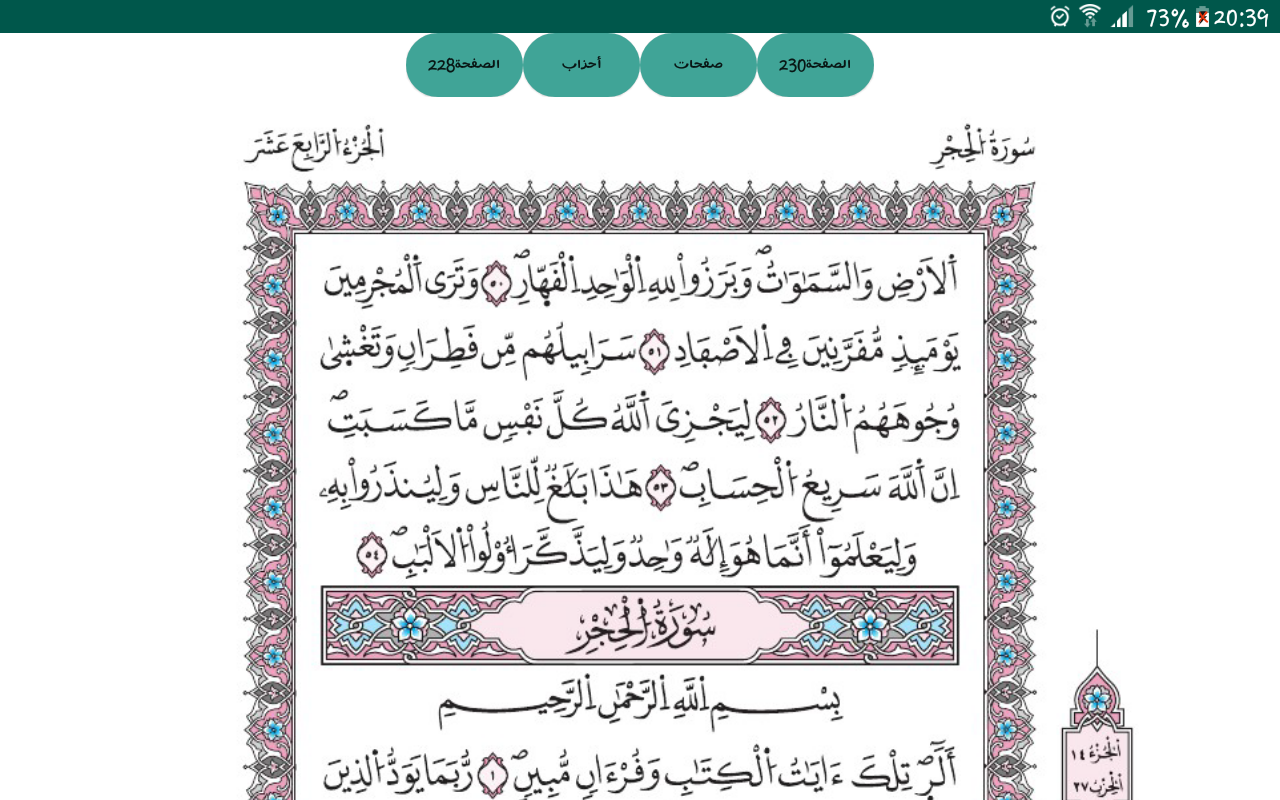 73% 20:39
الصفحة228 أحزاب صفحات الصفحة230
سُورَةُ الْحِجْرِ
الْجُزْءُ الرَّابِعَ عَشَرَ
اَ۬لَارْضِ وَالسَّمَٰوَٰتُۖ وَبَرَزُواْ لِلهِ اِ۬لْوَٰحِدِ اِ۬لْقَهّ۪ارِۖ ٥٠ وَتَرَى اَ۬لْمُجْرِمِينَ
يَوْمَئِذٖ مُّقَرَّنِينَ فِے اِ۬لَاصْفَادِ ٥١ سَرَابِيلُهُم مِّن قَطِرَانٖ وَتَغْش۪يٰ
وُجُوهَهُمُ اُ۬لنَّارُ ٥٢ لِيَجْزِيَ اَ۬للَّهُ كُلَّ نَفْسٖ مَّا كَسَبَتِۖ
اِنَّ اَ۬للَّهَ سَرِيعُ اُ۬لْحِسَابِۖ ٥٣ هَٰذَا بَلَٰغٞ لِّلنَّاسِ وَلِيُنذَرُواْ بِهِۦ
وَلِيَعْلَمُوٓاْ أَنَّمَا هُوَ إِلَٰهٞ وَٰحِدٞ وَلِيَذَّكَّرَ أُوْلُواْ اُ۬لَالْبَٰبِۖ ٥٤
سُورَةُ الْحِجْرِ
بِسْمِ اِ۬للَّهِ اِ۬لرَّحْمَٰنِ اِ۬لرَّحِيمِ
أَلَٓرۖ تِلْكَ ءَايَٰتُ اُ۬لْكِتَٰبِ وَقُرْءَانٖ مُّبِينٖۖ ١ رُّبَمَا يَوَدُّ اُ۬لذِينَ
الْجُزْءُ ١٤
الْحِزْبُ ٢٧